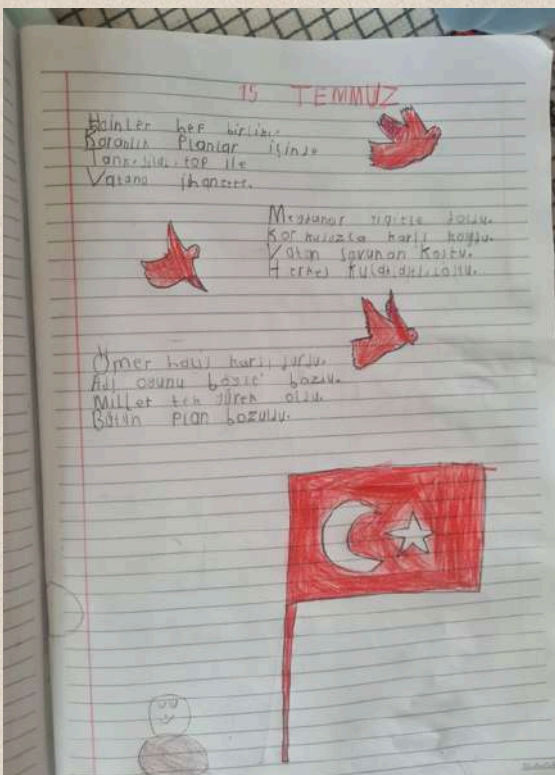 15 TEMMUZ
Hainler hep birlikte.
Karanlık Planlar içinde
Tank, silah, top ile
Vatana ihanette.
Meydanlar yiğitle doldu.
Korkusuzca karşı koydu.
Vatan savunan Koştu.
Herkes
Ömer halis karşı durdu.
oyunu böyle bozdu.
Millet tek yürek oldu.
Bütün Plan bozuldu.